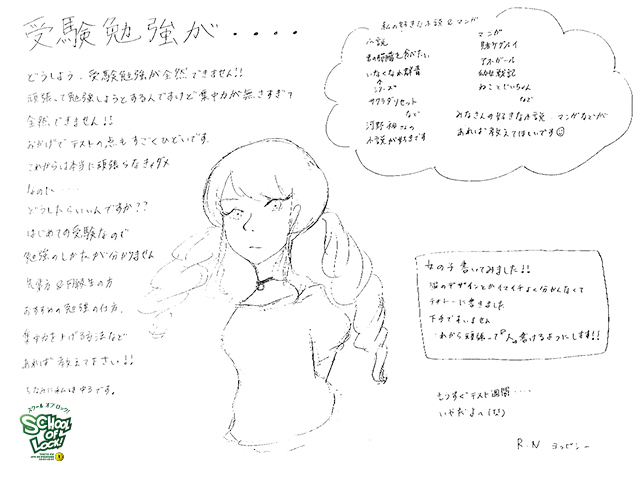 受験勉強が・・・・
どうしよう、受験勉強が全然できません!!
頑張って勉強しようとするんですけど集中力が無さすぎて
全然できません!!
おかげでテストの点もすごくひどいです。
これからは本当に頑張らなきゃダメ
なのに・・・・
どうしたらいいんですか??
はじめての受験なので
勉強のしかたが分かりません
先輩方や同級生の方
おすすめの勉強の仕方、
集中力を上げる方法など
あれば教えて下さい!!
ちなみに私は中3です。
スクール オブ ロック!
SCHOOL OF LOCK!
私の好きな小説&マンガ
小説
君の膵臓を食べたい
いなくなれ群青
シリーズ
サクラダリセット
など
河野裕さんの
小説が好きです
マンガ
賭ケグルイ
アホガール
幼女戦記
ねことじいちゃん
など
みなさんの好きな小説、マンガなどが
あれば教えてほしいです
女の子書いてみました!!
服のデザインとかイマイチよく分かんなくて
テキトーに書きました
下手ですいません
これから頑張って『人』書けるようにします!!
もうすぐテスト週間・・・・
いやだよぉ
R.N ヨッピー